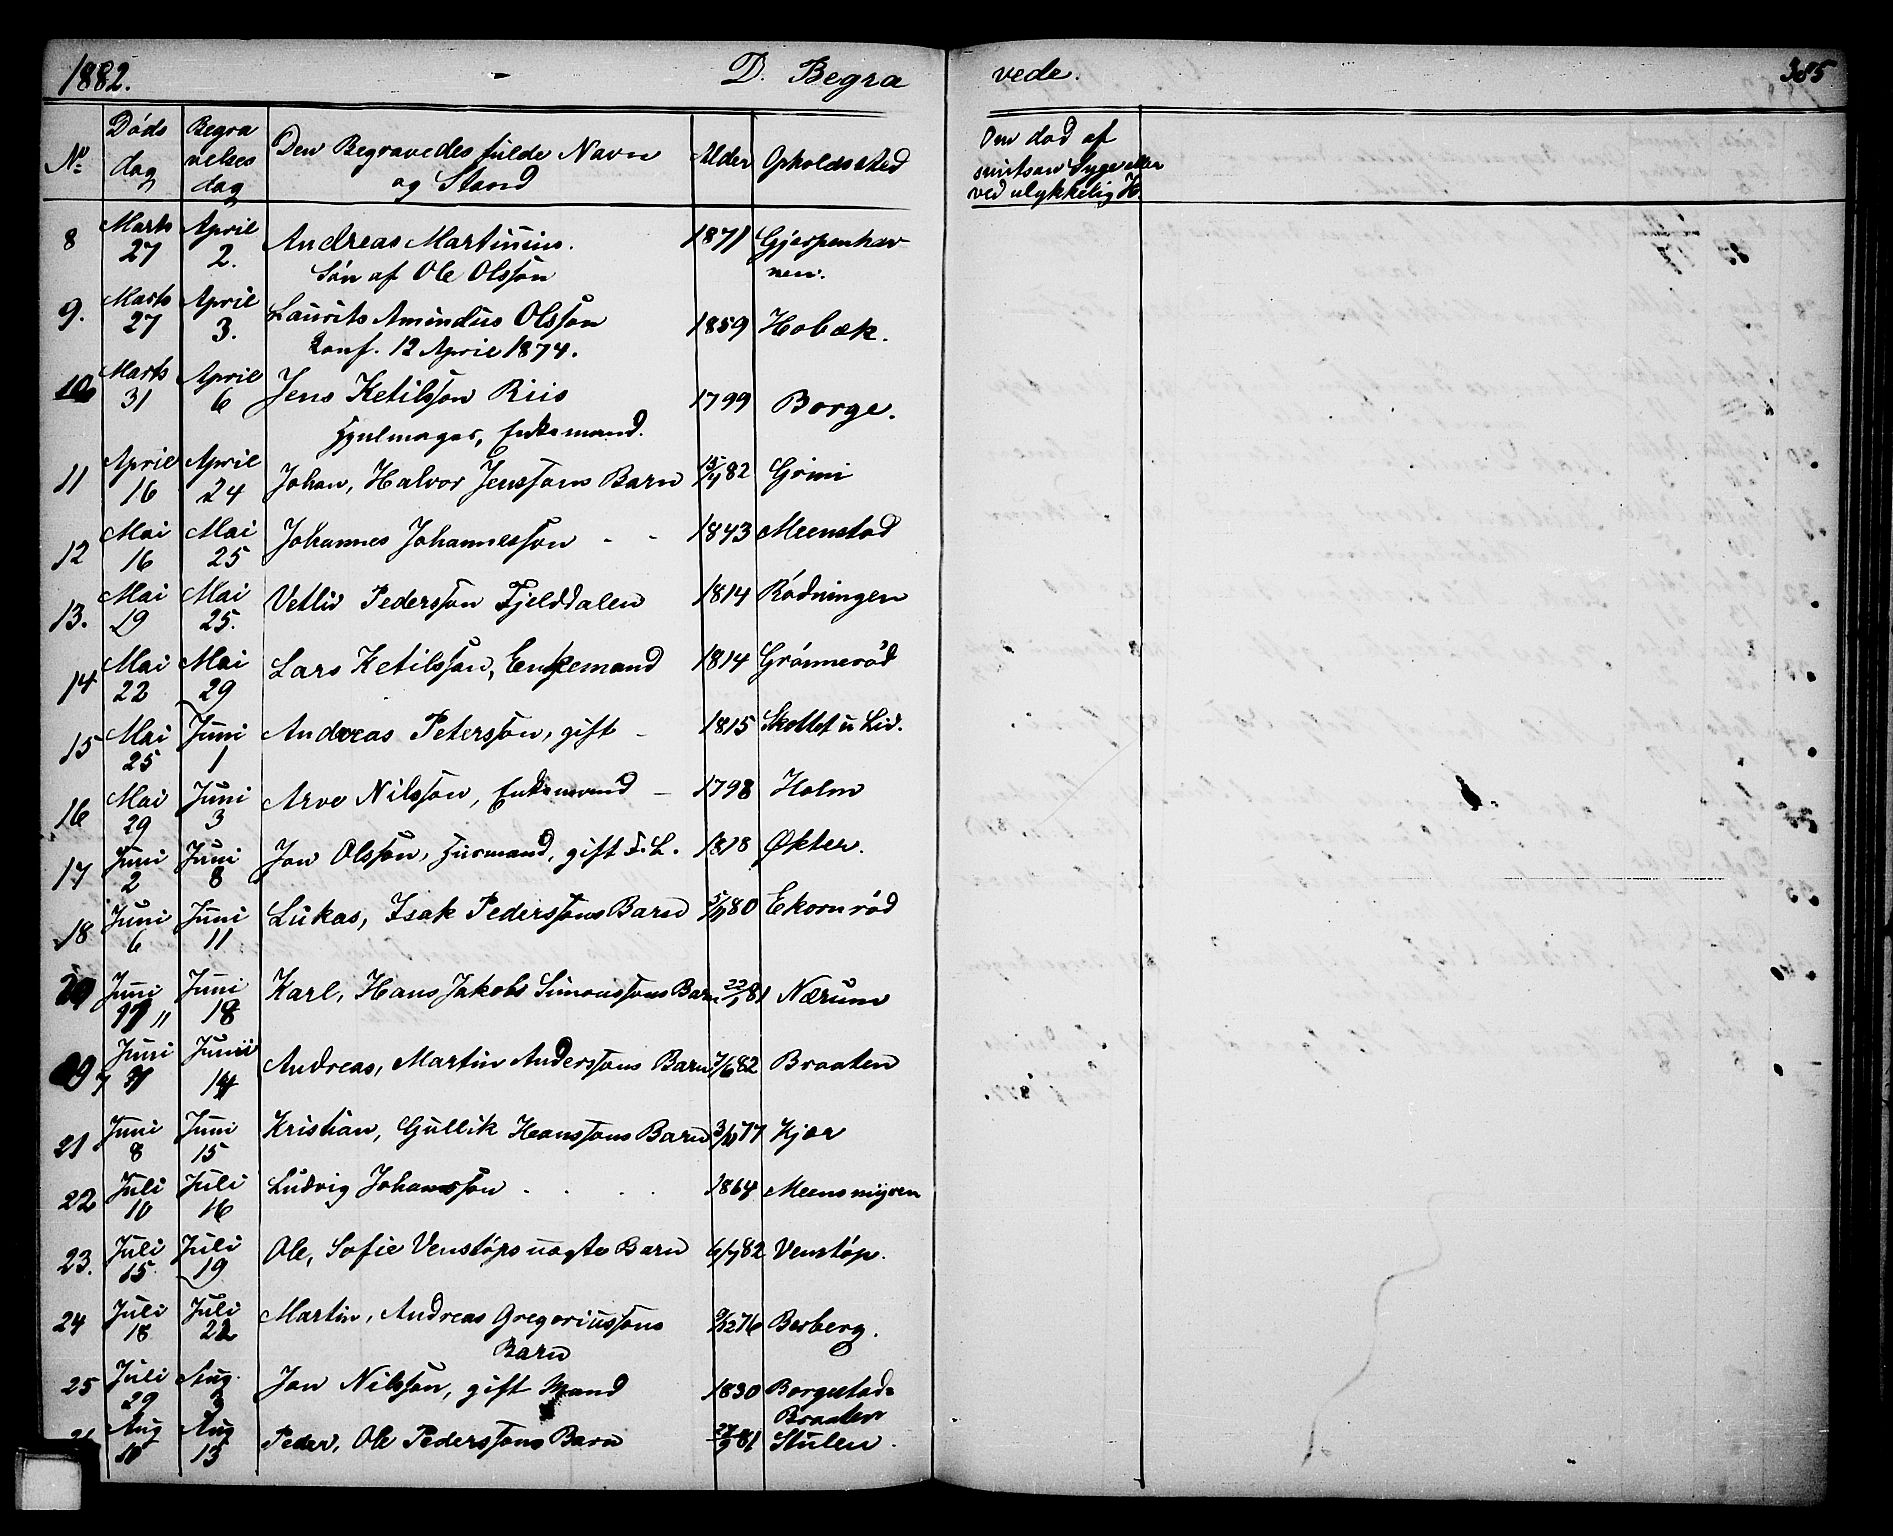 1882. D. Begra vede. 385
No Döds dag Begra velses dag Den Begravedes fulde Navn og Stand Alder Opholdssted Om död af smitsom Syge eller ved ulykkelig H.
8 Marts 27 April 2. Andreas Martinius. 1871 Gjerpenhav
Sön af Ole Olsson nen.
9. Marts 27 April 3. Laurits Amindus Olsson 1859 Hobæk.
Konf. 12 April 1874.
10 Marts 31 April 6 Jens Ketilsson Riis 1799 Borge.
Hjulmager, Enkemand.
11 April 16 April 24 Johan, Halvor Jenssons Barn 15/4 82 Grini
12 Mai 16 Mai 25 Johannes Johannesson - - 1843 Meenstad
13. Mai 19 Mai 25. Vetliv Pedersson Fjelddalen 1814 Rödningen
14 Mai 22 Mai 29 Lars Ketilsson, Enkemand 1814 Grönneröd
15 Mai 25 Juni 1 Andreas Petersson, gift - 1815 Skottet u Lid.
16 Mai 29 Juni 3 Arve Nilsson, Enkemand - 1798 Holm
17 Juni 2 Juni 8 Jon Olsson, Husmand, gift F. L. 1818 Økter.
18 Juni 6 Juni 11 Lukas, Isak Pederssons Barn 80 Ekornröd
20 Juni 11 Juni 18 Karl, Hans Jakob Simonssons Barn 22/1 81 Nærum
19 Juni 7 Juni 14 Andreas, Martin Anderssons Barn 7/6 82 Braaten
21 Juni 8 Juni 15 Kristian, Gullik Hanssons Barn 77 Kjær
22 Juli 10 Juli 16 Ludvig Johansson . . . . 1864 Meensmyren
23. Juli 15 Juli 19 Ole, Sofie Venstöps uægte Barn 82 Venstöp.
24 Juli 18 Juli 22 Martin, Andreas Gregoriussons 9/12 76 Berberg.
Barn
25 Juli 29 Aug. 3 Jon Nilsson, gift Mand 1830 Borgestad-
Braaten
Aug 10 Aug 13 Peder, Ole Pederssons Barn 27/9 81 Stulen.